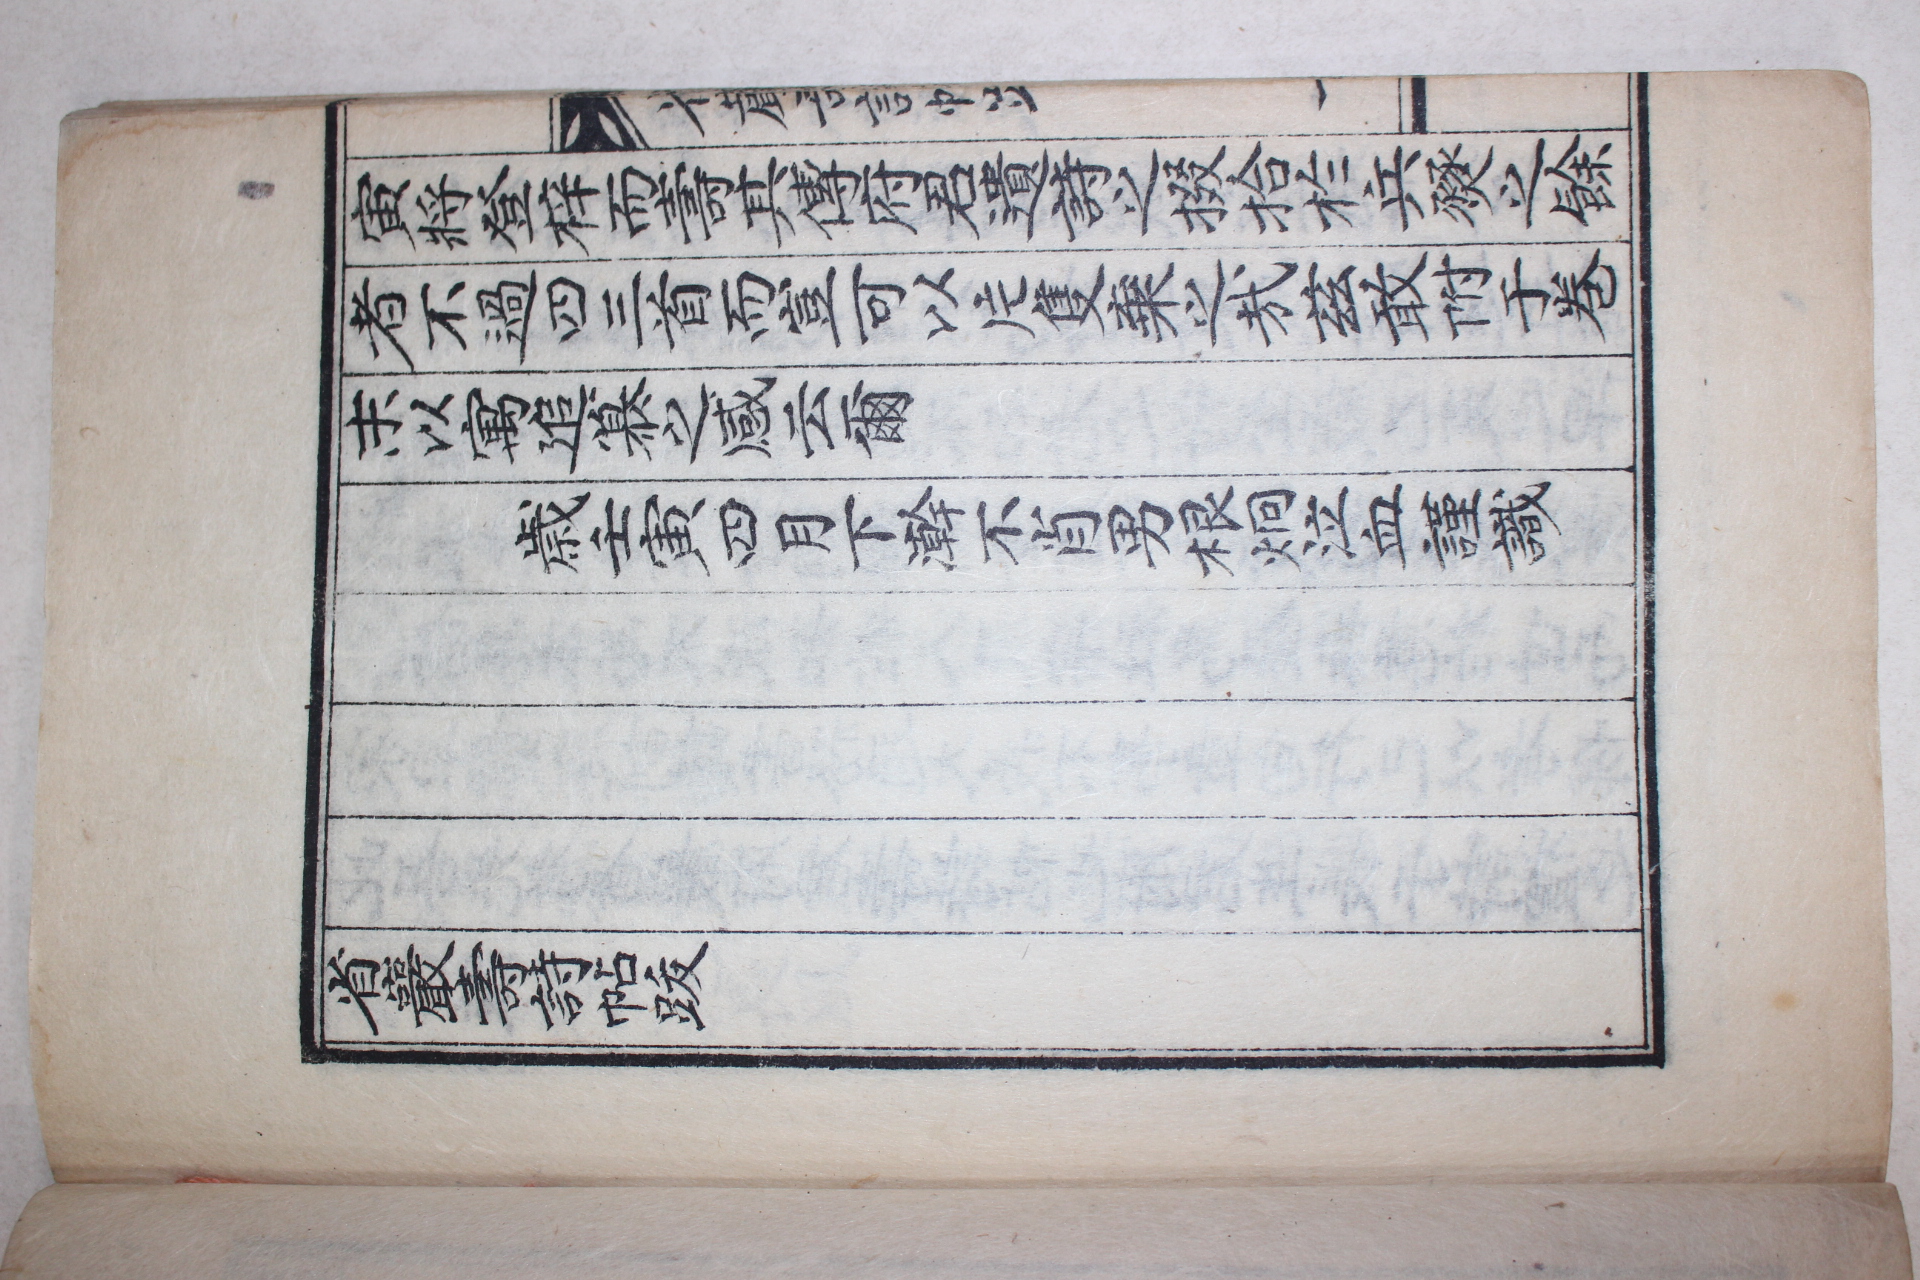 寅將登梓而壽其傳府君遺詩之掇拾於兵燹之餘
者不過四三首而豈可以片隻棄之哉茲敢附于卷
末以寓追慕之感云爾
歲壬寅四月下澣不肖男根炯泣血謹識
省巖壽詩帖跋